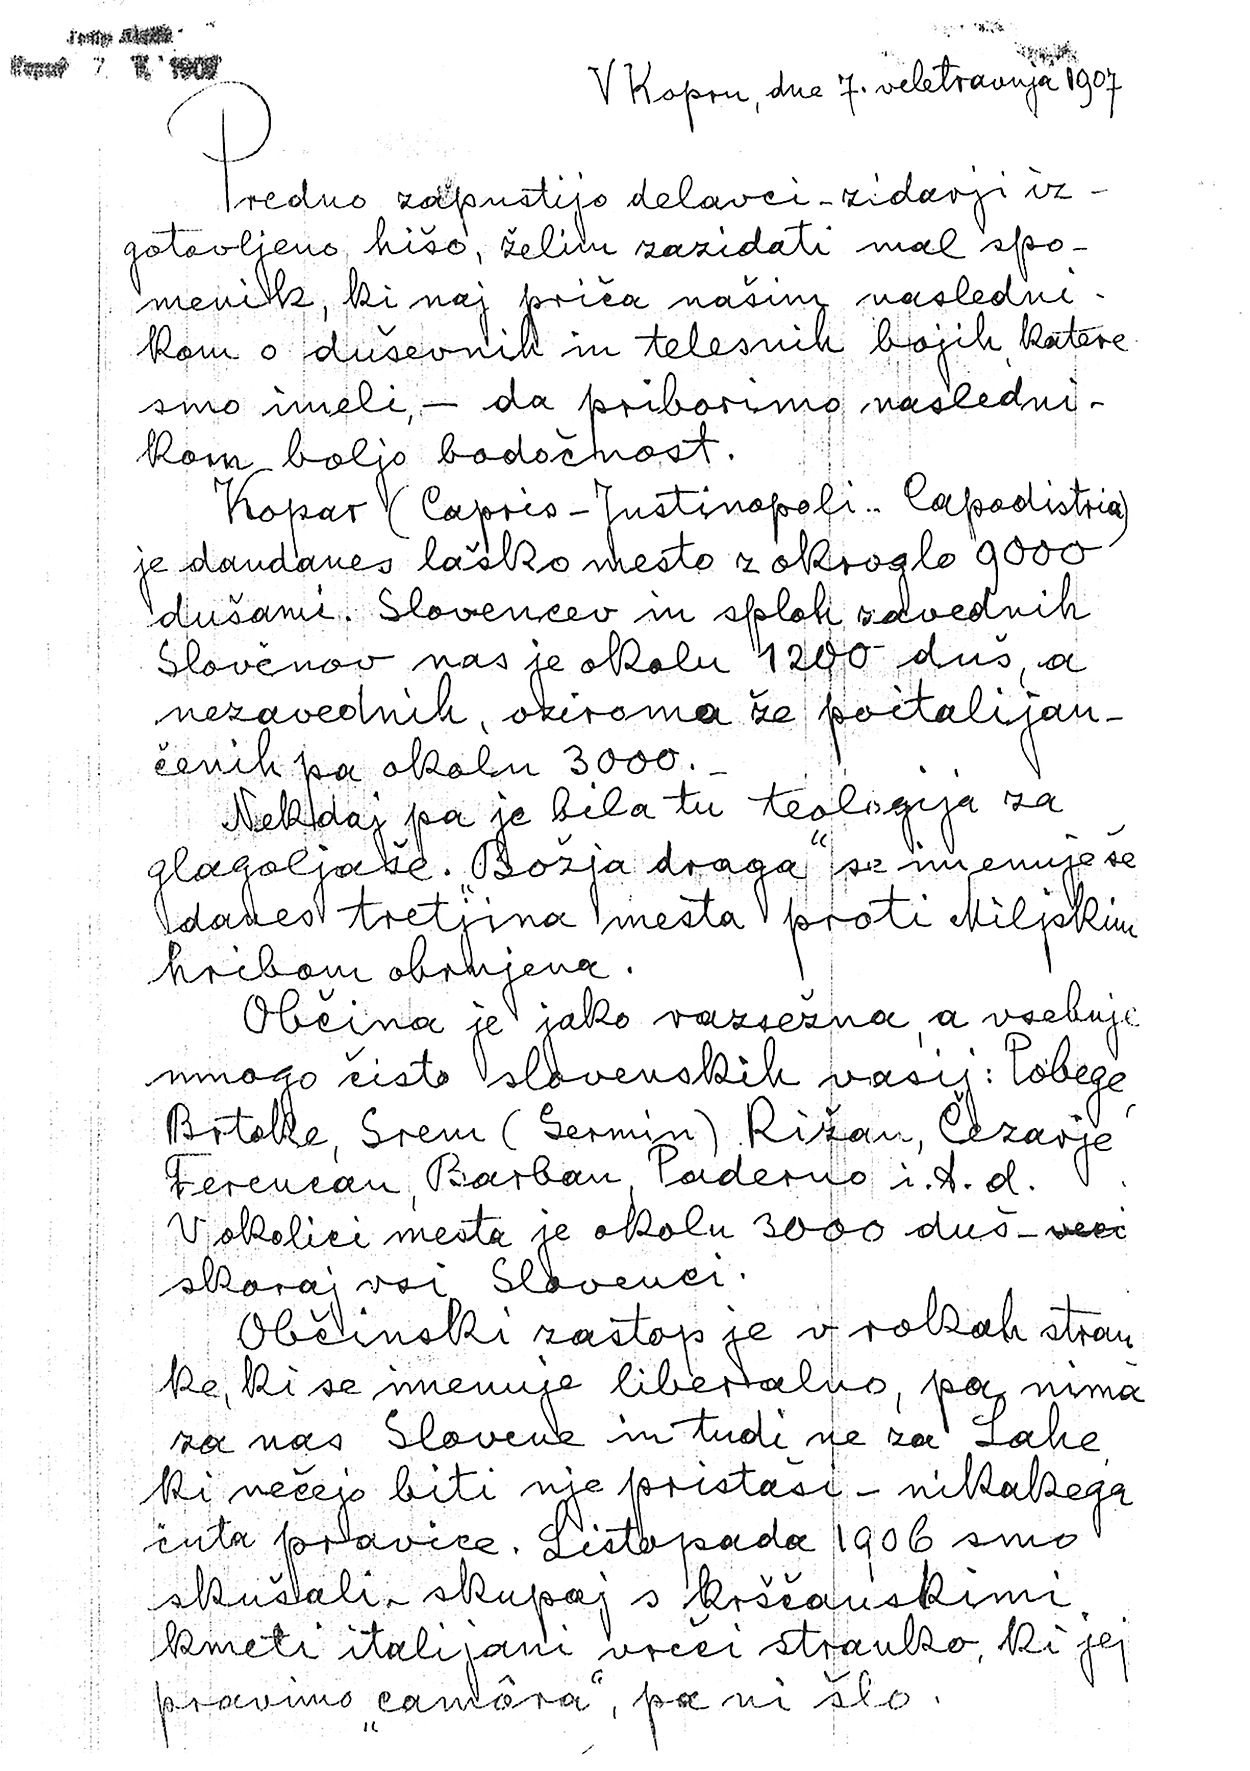 1907
V Kopru, dne 7. veletravnja 1907
Predno zapustijo delavci-zidarji iz-
gotovljeno hišo, želim zazidati mal spo-
menik, ki naj priča našim nasledni-
kom o duševnih in telesnih bojih katere
smo imeli, – da priborimo nasledni-
kom boljo bodočnost.
Kopar (Capris-Justinopoli.. Capodistria)
je dandanes laško mesto z okroglo 9000
dušami. Slovencev in sploh zavednih
Slovénov nas je okolu 1200 duš, a
nezavednih, oziroma že poitalijan-
čenih pa okolu 3000. –
Nekdaj pa je bila tu teologija za
glagoljaše. „Božja draga“ se imenuje še
danes tretjina mesta proti Miljskim
hribom obrnjena.
Občina je jako razsežna, a vsebuje
mnogo čisto slovenskih vasij: Pobege,
Brtoke, Srem (Sermin) Rižan, Čezarje
Ferencan, Barban, Paderno i.t.d.
V okolici mesta je okolu 3000 duš –
skoraj vsi Slovenci.
Občinski zastop je v rokah stran
ke, ki se imenuje liberalno, pa nima
za nas Slovene in tudi ne za Lahe,
ki nečejo biti nje pristaši – nikakega
čuta pravice. Listopada 1906 smo
skušali skupaj s krščanskimi
kmeti italijani vreči stranko, ki jej
pravimo „camôra“, pa ni šlo.